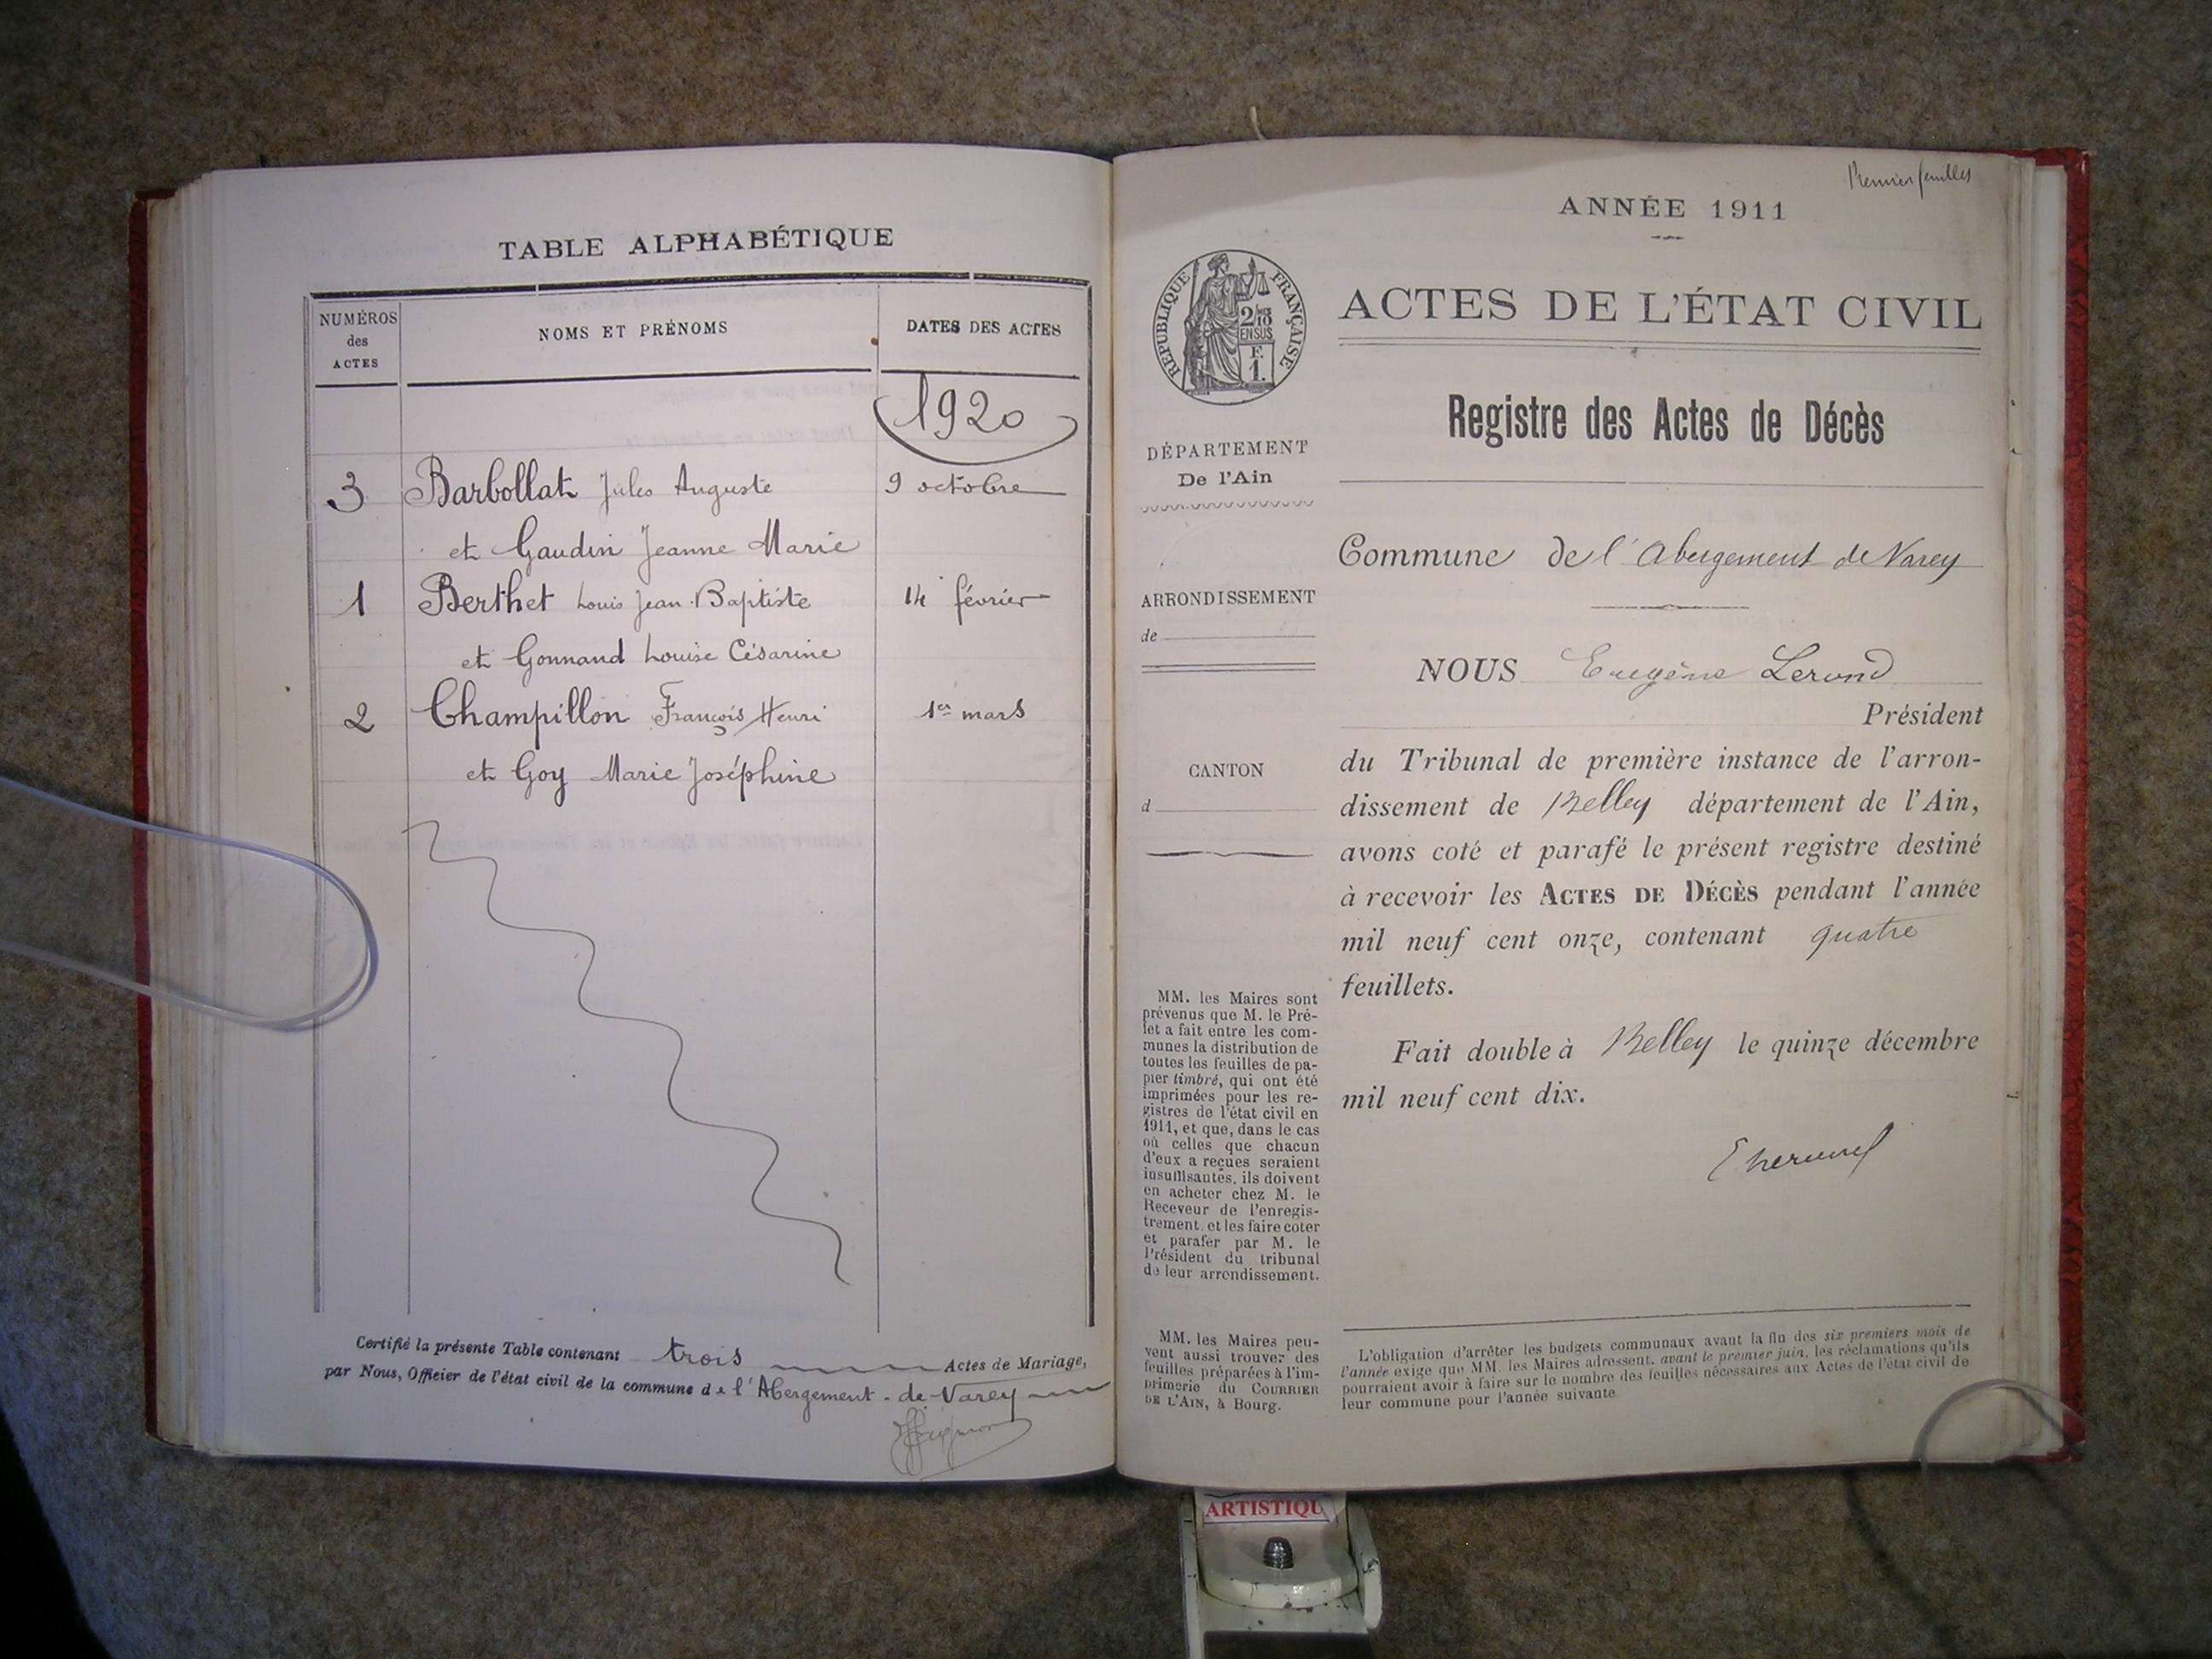 TABLE ALPHABÉTIQUE
NUMÉROS
des
ACTES
NOMS ET PRÉNOMS
DATES DES ACTES
1920
3 Barbollat Jules Auguste 9 octobre
et Gaudin Jeanne Marie
1 Berthet Louis Jean-Baptiste 14 février
et Gonnand Louise Césarine
2 Champillon François Henri 1er mars
et Goy Marie Joséphine
Certifié la présente Table contenant trois Actes de Mariage,
par Nous, Officier de l'état civil de la commune de l'Abergement-de-Varey
ANNÉE 1911
RÉPUBLIQUE FRANÇAISE
2/10
EN SUS
F.
1.
ACTES DE L'ÉTAT CIVIL
Registre des Actes de Décès
DÉPARTEMENT
De l'Ain
ARRONDISSEMENT
de
CANTON
d
Commune de l'Abergement de Varey
NOUS Eugène
Président
du Tribunal de première instance de l'arron-
dissement de Belley département de l'Ain,
avons coté et parafé le présent registre destiné
à recevoir les ACTES DE DÉCÈS pendant l'année
mil neuf cent onze, contenant quatre
feuillets.
Fait double à Belley le quinze décembre
mil neuf cent dix.
MM. les Maires sont
prévenus que M. le Pré-
fet a fait entre les com-
munes la distribution de
toutes les feuilles de pa-
pier timbré, qui ont été
imprimées pour les re-
gistres de l'état civil en
1911, et que, dans le cas
où celles que chacun
d'eux a reçues seraient
insuffisantes, ils doivent
en acheter chez M. le
Receveur de l'enregis-
trement, et les faire coter
et parafer par M. le
Président du tribunal
de leur arrondissement.
MM. les Maires peu-
vent aussi trouver des
feuilles préparées à l'im-
primerie du COURRIER
DE L'AIN, à Bourg.
L'obligation d'arrêter les budgets communaux avant la fin des six premiers mois de
l'année exige que MM. les Maires adressent, avant le premier juin, les réclamations qu'ils
pourraient avoir à faire sur le nombre des feuilles nécessaires aux Actes de l'état civil de
leur commune pour l'année suivante
ARTISTIQU